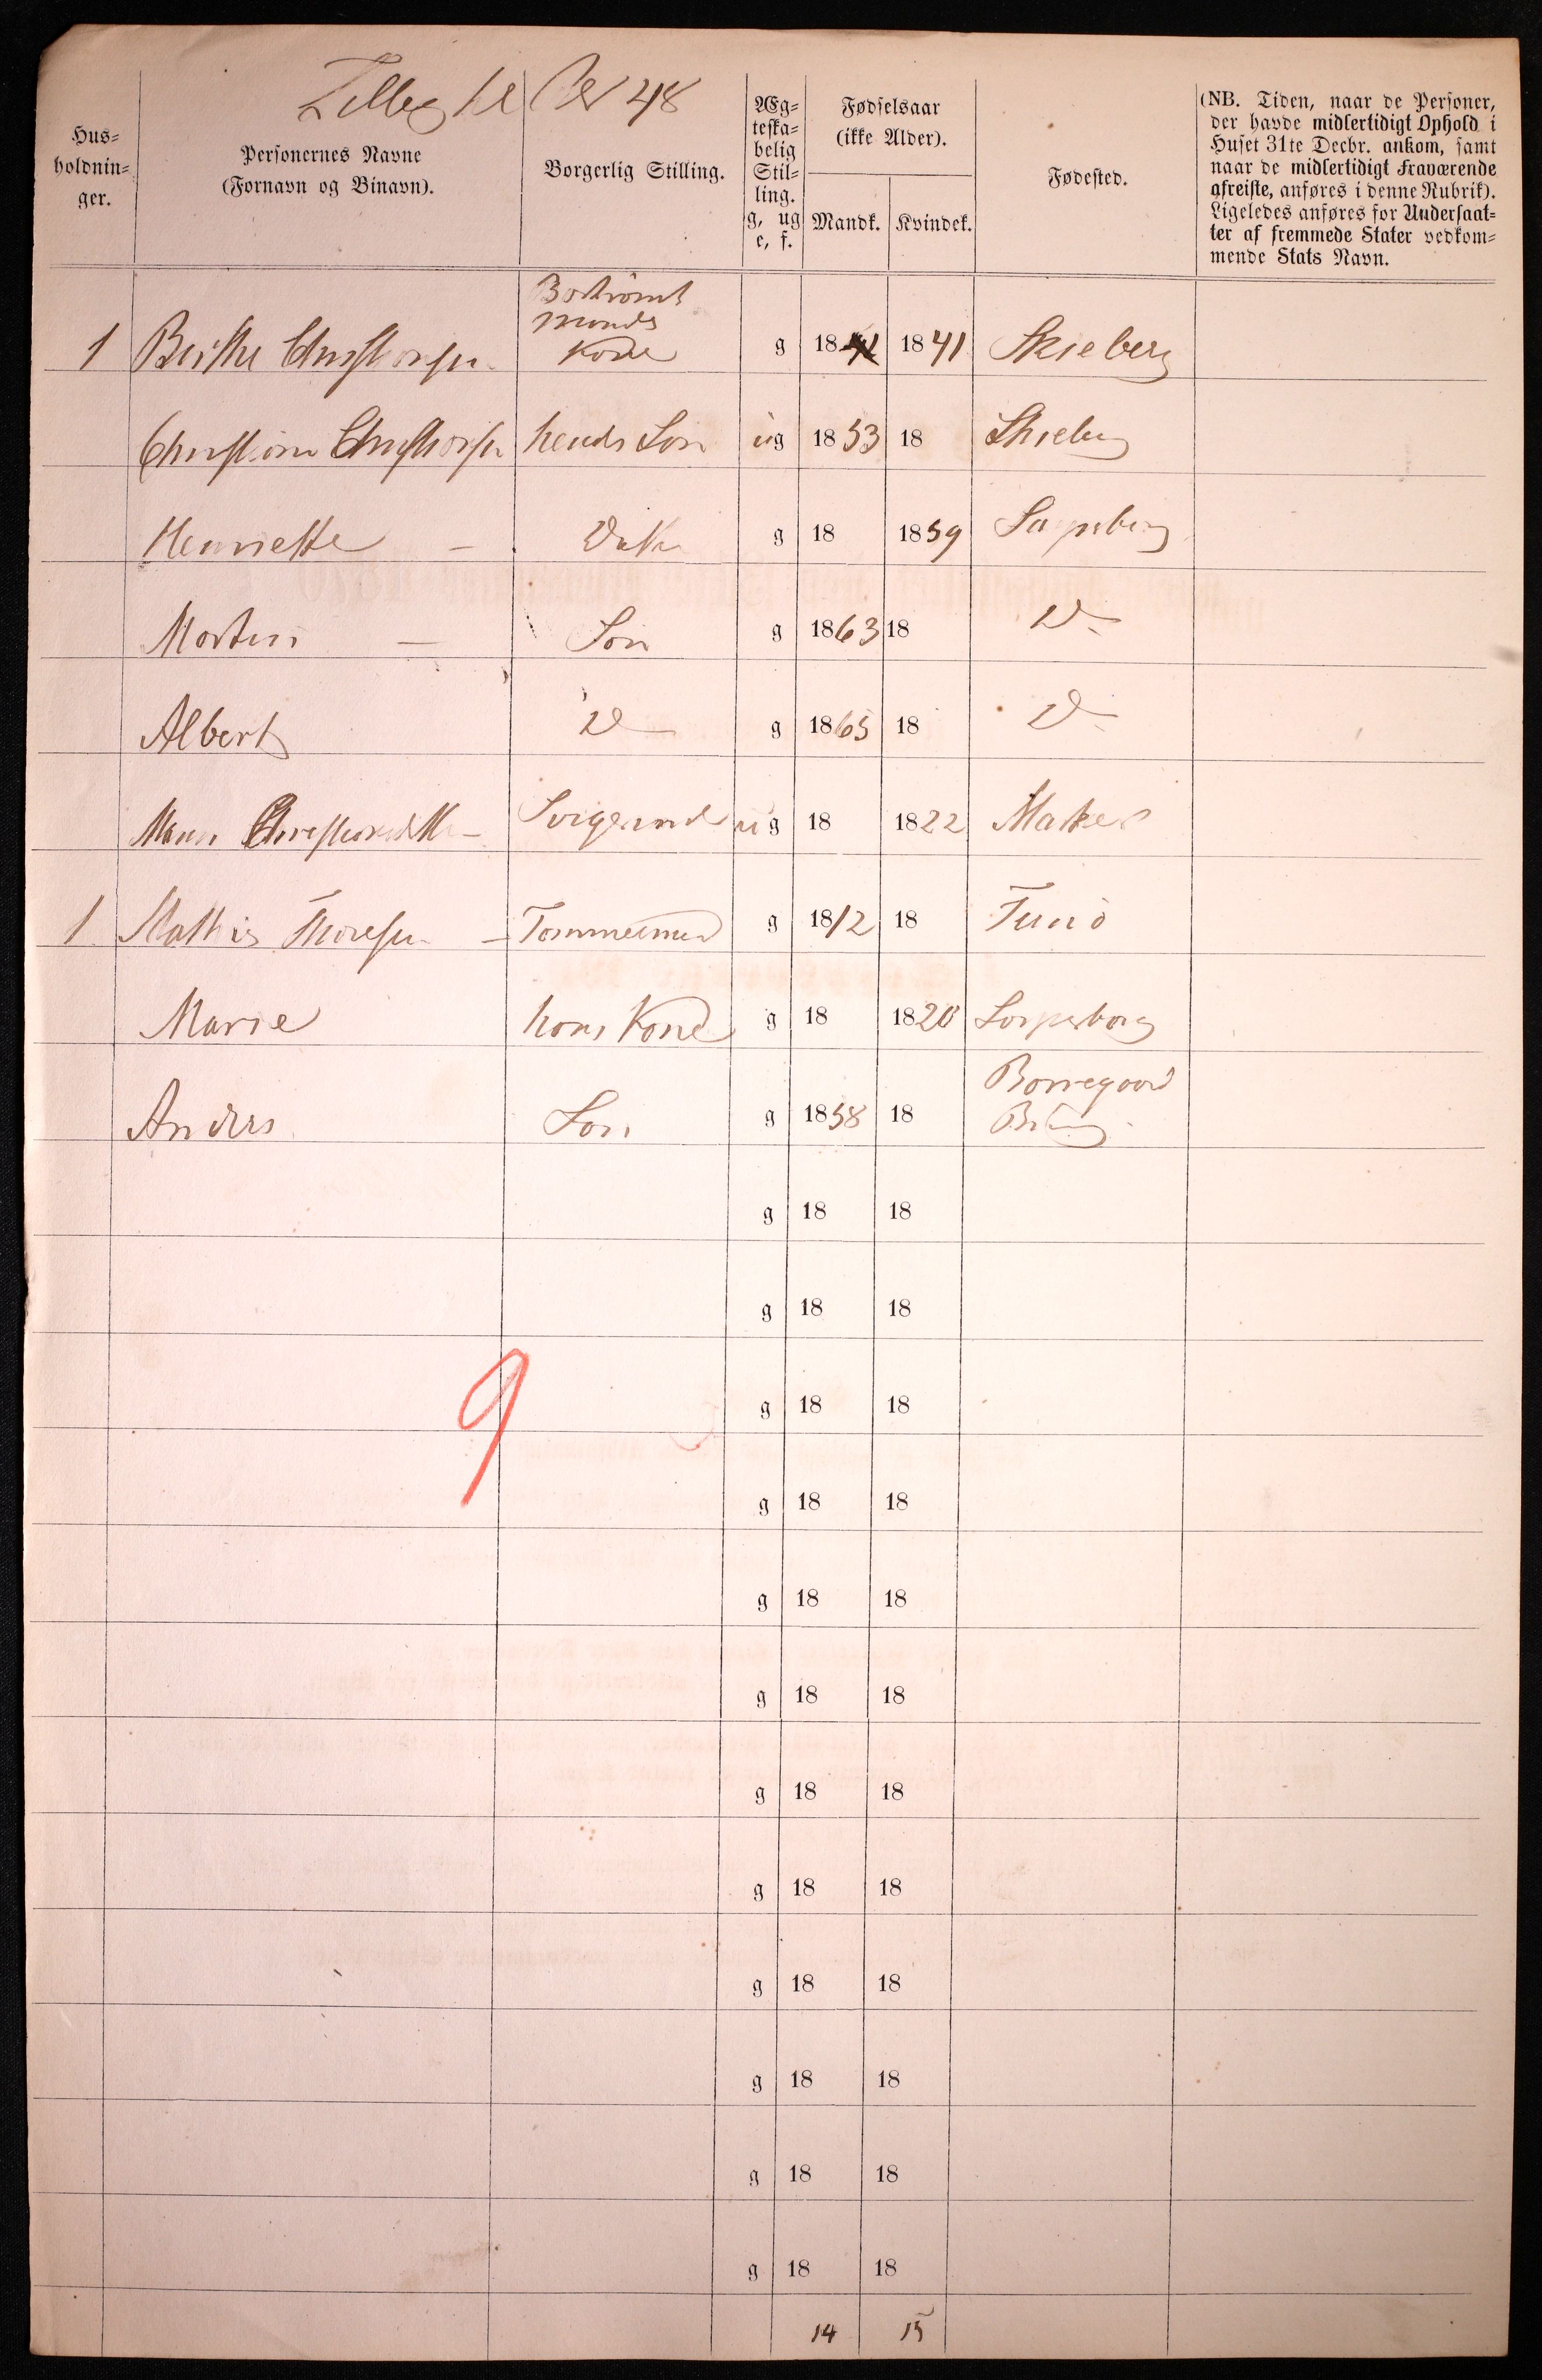 Tillæg til No 48
Hus-
holdnin-
ger.
Personernes Navne
(Fornavn og Binavn).
Borgerlig Stilling.
Æg-
teska-
belig
Stil-
ling.
g, ug
e, f.
Fødselsaar
(ikke Alder).
Mandk. Kvindek.
Fødested.
(NB. Tiden, naar de Personer,
der havde midlertidigt Ophold i
Huset 31te Decbr. ankom, samt
naar de midlertidigt fraværende
afreiste, anføres i denne Rubrik).
Ligeledes anføres for Undersaat-
ter af fremmede Stater vedkom-
mende Stats Navn.
mands
1 Berthe Christophersen Kone g 18 1841 Skieberg
Christian Christophersen hends Søn ug 1853 18 Skieberg
Henriette — Datt g 18 1859 Sarpsborg
Morten — Søn g 1863 18 Do
Albert Do g 1865 18 Do
ug 18 1822
1 Mathis Thoresen — Tømmermand g 1812 18 Tunø
Marie hans Kone g 18 1820 Sarpsborg
Borregaard
Anders Søn g 1858 18 Brug
g 18 18
g 18 18
9
g 18 18
g 18 18
g 18 18
g 18 18
g 18 18
g 18 18
g 18 18
g 18 18
g 18 18
g 18 18
14 15